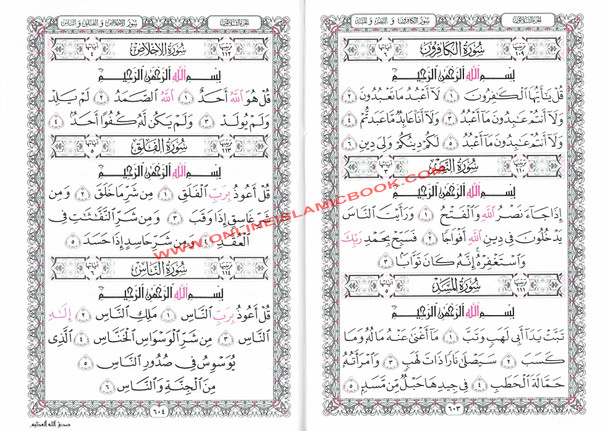 سورة الكافرون و النصر و المسد
سُورَةُ الكَافِرُونَ
١٠٩
٦
بِسْمِ اللَّهِ الرَّحْمَٰنِ الرَّحِيمِ
قُلْ يَٰٓأَيُّهَا ٱلْكَٰفِرُونَ ١ لَآ أَعْبُدُ مَا تَعْبُدُونَ ٢
وَلَآ أَنتُمْ عَٰبِدُونَ مَآ أَعْبُدُ ٣ وَلَآ أَنَا۠ عَابِدٌ مَّا عَبَدتُّمْ ٤
وَلَآ أَنتُمْ عَٰبِدُونَ مَآ أَعْبُدُ ٥ لَكُمْ دِينُكُمْ وَلِىَ دِينِ ٦
سُورَةُ النَّصْرِ
١١٠
٣
بِسْمِ اللَّهِ الرَّحْمَٰنِ الرَّحِيمِ
إِذَا جَآءَ نَصْرُ ٱللَّهِ وَٱلْفَتْحُ ١ وَرَأَيْتَ ٱلنَّاسَ
يَدْخُلُونَ فِى دِينِ ٱللَّهِ أَفْوَاجًا ٢ فَسَبِّحْ بِحَمْدِ رَبِّكَ
وَٱسْتَغْفِرْهُ إِنَّهُۥ كَانَ تَوَّابًۢا ٣
سُورَةُ المَسَدِ
بِسْمِ اللَّهِ الرَّحْمَٰنِ الرَّحِيمِ
تَبَّتْ يَدَآ أَبِى لَهَبٍ وَتَبَّ ١ مَآ أَغْنَىٰ عَنْهُ مَالُهُۥ وَمَا
كَسَبَ ٢ سَيَصْلَىٰ نَارًا ذَاتَ لَهَبٍ ٣ وَٱمْرَأَتُهُۥ
حَمَّالَةَ ٱلْحَطَبِ ٤ فِى جِيدِهَا حَبْلٌ مِّن مَّسَدٍۭ ٥
٦٠٣
سورة الإخلاص و الفلق و الناس
سُورَةُ الإِخْلَاصِ
١١٢
٤
بِسْمِ اللَّهِ الرَّحْمَٰنِ الرَّحِيمِ
قُلْ هُوَ ٱللَّهُ أَحَدٌ ١ ٱللَّهُ ٱلصَّمَدُ ٢ لَمْ يَلِدْ
وَلَمْ يُولَدْ ٣ وَلَمْ يَكُن لَّهُۥ كُفُوًا أَحَدٌۢ ٤
سُورَةُ الفَلَقِ
بِسْمِ اللَّهِ الرَّحْمَٰنِ الرَّحِيمِ
قُلْ أَعُوذُ بِرَبِّ ٱلْفَلَقِ ١ مِن شَرِّ مَا خَلَقَ ٢ وَمِن
شَرِّ غَاسِقٍ إِذَا وَقَبَ ٣ وَمِن شَرِّ ٱلنَّفَّٰثَٰتِ فِى
ٱلْعُقَدِ ٤ وَمِن شَرِّ حَاسِدٍ إِذَا حَسَدَ ٥
سُورَةُ النَّاسِ
بِسْمِ اللَّهِ الرَّحْمَٰنِ الرَّحِيمِ
قُلْ أَعُوذُ بِرَبِّ ٱلنَّاسِ ١ مَلِكِ ٱلنَّاسِ ٢ إِلَٰهِ
ٱلنَّاسِ ٣ مِن شَرِّ ٱلْوَسْوَاسِ ٱلْخَنَّاسِ ٤ ٱلَّذِى
يُوَسْوِسُ فِى صُدُورِ ٱلنَّاسِ ٥
مِنَ ٱلْجِنَّةِ وَٱلنَّاسِ ٦
٦٠٤
صدق الله العظيم
WWW.ONLINEISLAMICBOOK.COM